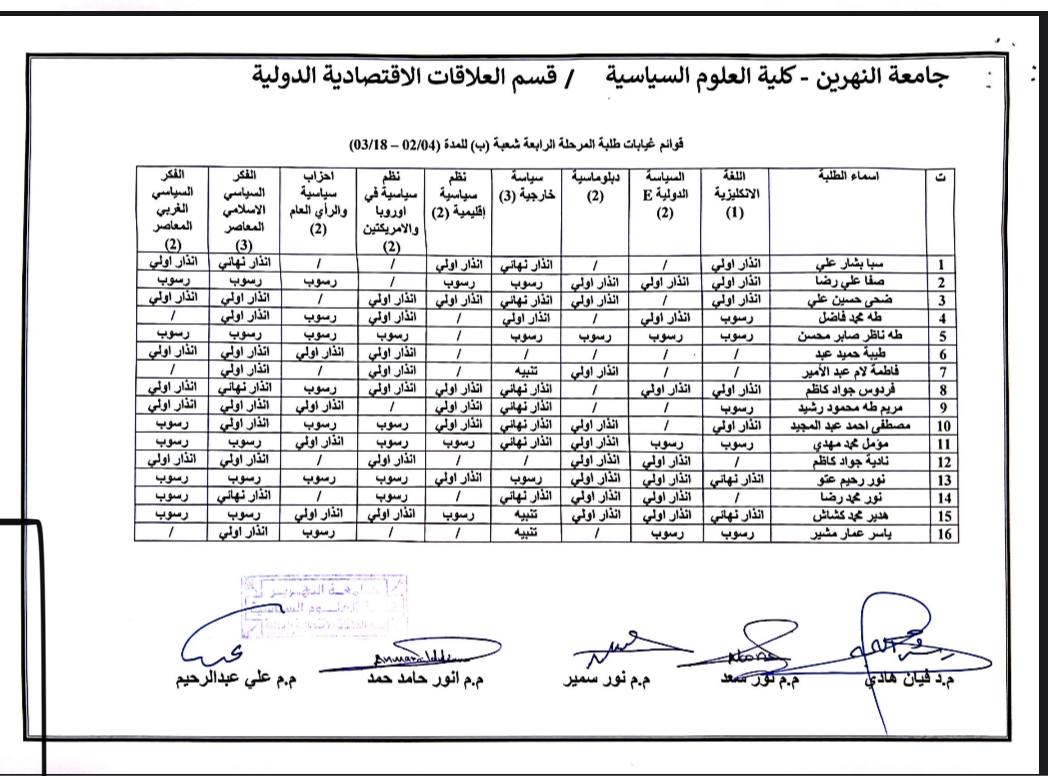 جامعة النهرين - كلية العلوم السياسية / قسم العلاقات الاقتصادية الدولية
قوائم غيابات طلبة المرحلة الرابعة شعبة (ب) للمدة (02/04 – 03/18)
ت اسماء الطلبة اللغة الانكليزية (1) السياسة الدولية E (2) دبلوماسية (2) سياسة خارجية (3) نظم سياسية إقليمية (2) نظم سياسية في اوروبا والامريكتين (2) احزاب سياسية والرأي العام (2) الفكر السياسي الاسلامي المعاصر (3) الفكر السياسي الغربي المعاصر (2)
1 سبا بشار علي انذار اولي / / انذار نهائي انذار اولي / / انذار نهائي انذار اولي
2 صفا علي رضا انذار اولي انذار اولي انذار اولي رسوب رسوب / رسوب رسوب رسوب
3 ضحى حسين علي انذار اولي / انذار اولي انذار نهائي انذار اولي انذار اولي / انذار اولي انذار اولي
4 طه محمد فاضل رسوب انذار اولي / انذار اولي / انذار اولي رسوب انذار اولي /
5 طه ناظر صابر محسن رسوب رسوب رسوب رسوب / رسوب رسوب رسوب رسوب
6 طيبة حميد عبد / / / / / انذار اولي انذار اولي انذار اولي انذار اولي
7 فاطمة لام عبد الأمير / / انذار اولي تنبيه / / / انذار اولي /
8 فردوس جواد كاظم انذار اولي انذار اولي / انذار نهائي انذار اولي انذار اولي رسوب انذار نهائي انذار اولي
9 مريم طه محمود رشيد رسوب / / انذار نهائي انذار اولي / انذار اولي انذار اولي انذار اولي
10 مصطفى احمد عبد المجيد انذار اولي / انذار اولي انذار نهائي انذار اولي رسوب رسوب انذار اولي رسوب
11 مؤمل محمد مهدي رسوب رسوب انذار اولي انذار نهائي رسوب رسوب انذار اولي رسوب رسوب
12 نادية جواد كاظم / انذار اولي انذار اولي / / انذار اولي / انذار اولي انذار اولي
13 نور رحيم عنو انذار نهائي انذار اولي انذار اولي رسوب انذار اولي رسوب رسوب رسوب رسوب
14 نور محمد رضا / انذار اولي انذار اولي انذار نهائي / رسوب / انذار نهائي رسوب
15 هدير محمد كشاش انذار نهائي انذار اولي انذار اولي تنبيه رسوب انذار اولي انذار اولي رسوب رسوب
16 ياسر عمار مشير رسوب رسوب / تنبيه / / رسوب انذار اولي /
م.د فيان هادي م.م نور سعد م.م نور سمير م.م انور حامد حمد م.م علي عبدالرحيم